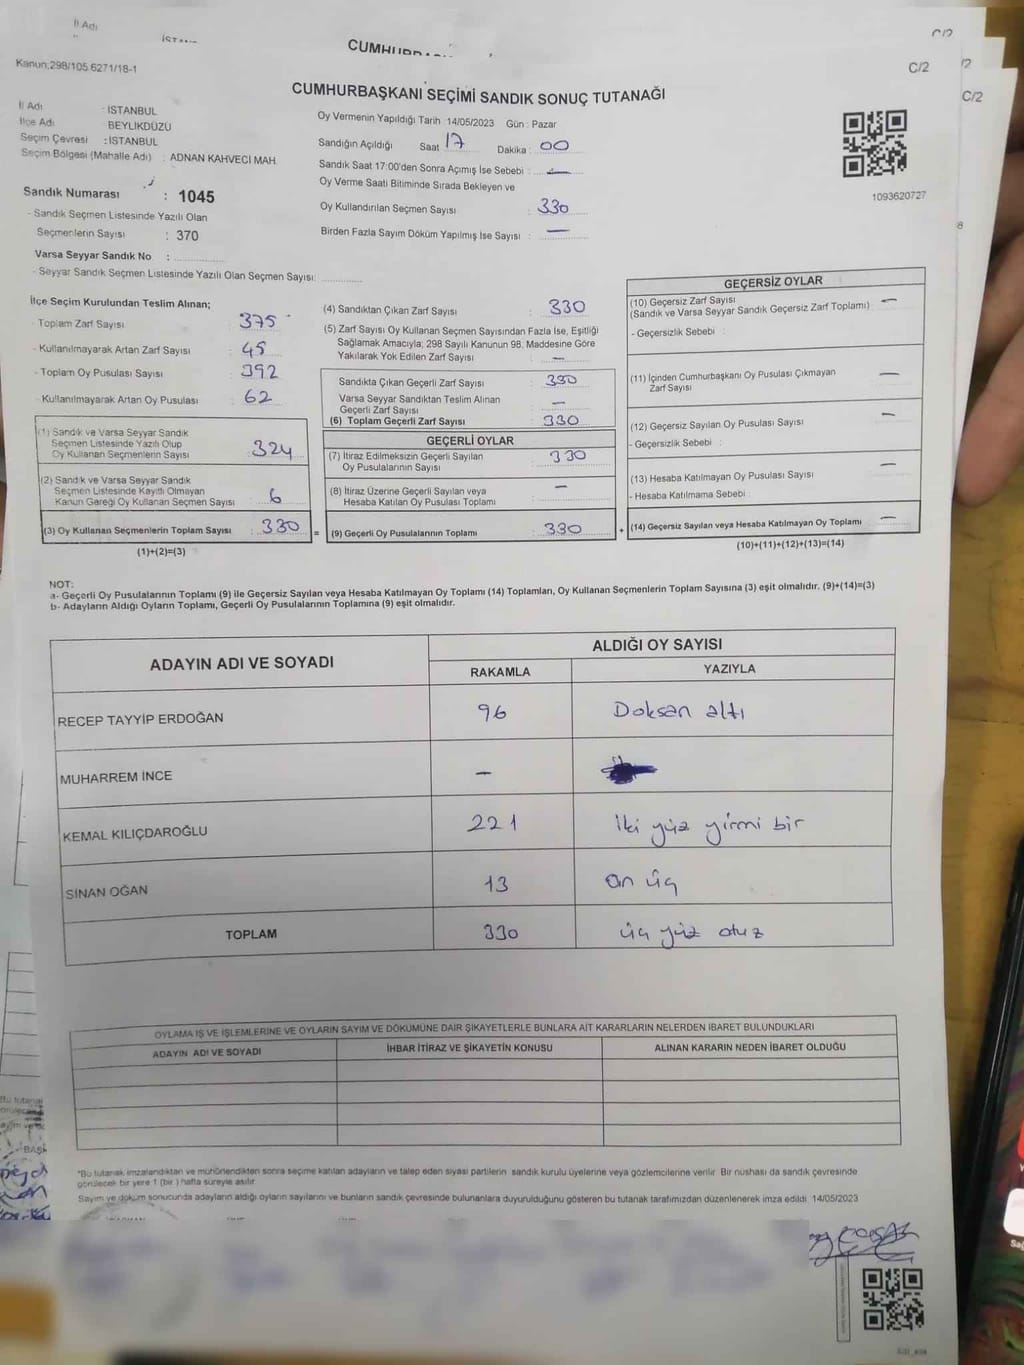 İl Adı
CUMHURBAŞ
C/2
Kanun;298/105.6271/18-1
C/2
C/2
CUMHURBAŞKANI SEÇİMİ SANDIK SONUÇ TUTANAĞI
İl Adı : İSTANBUL
İlçe Adı : BEYLİKDÜZÜ
Seçim Çevresi : İSTANBUL
Seçim Bölgesi (Mahalle Adı) : ADNAN KAHVECİ MAH.
Oy Vermenin Yapıldığı Tarih :14/05/2023 Gün : Pazar
Sandığın Açıldığı Saat 17 Dakika : 00
Sandık Saat 17:00'den Sonra Açımış İse Sebebi : —
Oy Verme Saati Bitiminde Sırada Bekleyen ve
Oy Kullandırılan Seçmen Sayısı : 330
Birden Fazla Sayım Döküm Yapılmış İse Sayısı : —
1093620727
Sandık Numarası : 1045
- Sandık Seçmen Listesinde Yazılı Olan
Seçmenlerin Sayısı : 370
Varsa Seyyar Sandık No :
- Seyyar Sandık Seçmen Listesinde Yazılı Olan Seçmen Sayısı:
İlçe Seçim Kurulundan Teslim Alınan;
- Toplam Zarf Sayısı : 375
- Kullanılmayarak Artan Zarf Sayısı : 45
- Toplam Oy Pusulası Sayısı : 392
- Kullanılmayarak Artan Oy Pusulası : 62
(1) Sandık ve Varsa Seyyar Sandık
Seçmen Listesinde Yazılı Olup
Oy Kullanan Seçmenlerin Sayısı : 324
(2) Sandık ve Varsa Seyyar Sandık
Seçmen Listesinde Kayıtlı Olmayan
Kanun Gereği Oy Kullanan Seçmen Sayısı : 6
(3) Oy Kullanan Seçmenlerin Toplam Sayısı : 330
(1)+(2)=(3)
(4) Sandıktan Çıkan Zarf Sayısı : 330
(5) Zarf Sayısı Oy Kullanan Seçmen Sayısından Fazla İse, Eşitliği
Sağlamak Amacıyla; 298 Sayılı Kanunun 98. Maddesine Göre
Yakılarak Yok Edilen Zarf Sayısı : —
Sandıkta Çıkan Geçerli Zarf Sayısı : 330
Varsa Seyyar Sandıktan Teslim Alınan
Geçerli Zarf Sayısı : —
(6) Toplam Geçerli Zarf Sayısı : 330
GEÇERLİ OYLAR
(7) İtiraz Edilmeksizin Geçerli Sayılan
Oy Pusulalarının Sayısı : 330
(8) İtiraz Üzerine Geçerli Sayılan veya
Hesaba Katılan Oy Pusulası Toplamı : —
= (9) Geçerli Oy Pusulalarının Toplamı : 330 +
GEÇERSİZ OYLAR
(10) Geçersiz Zarf Sayısı : —
(Sandık ve Varsa Seyyar Sandık Geçersiz Zarf Toplamı)
- Geçersizlik Sebebi :
(11) İçinden Cumhurbaşkanı Oy Pusulası Çıkmayan
Zarf Sayısı : —
(12) Geçersiz Sayılan Oy Pusulası Sayısı : —
- Geçersizlik Sebebi :
(13) Hesaba Katılmayan Oy Pusulası Sayısı : —
- Hesaba Katılmama Sebebi :
(14) Geçersiz Sayılan veya Hesaba Katılmayan Oy Toplamı : —
(10)+(11)+(12)+(13)=(14)
NOT:
a- Geçerli Oy Pusulalarının Toplamı (9) ile Geçersiz Sayılan veya Hesaba Katılmayan Oy Toplamı (14) Toplamları, Oy Kullanan Seçmenlerin Toplam Sayısına (3) eşit olmalıdır. (9)+(14)=(3)
b- Adayların Aldığı Oyların Toplamı, Geçerli Oy Pusulalarının Toplamına (9) eşit olmalıdır.
ADAYIN ADI VE SOYADI
ALDIĞI OY SAYISI
RAKAMLA YAZIYLA
RECEP TAYYİP ERDOĞAN 96 Doksan altı
MUHARREM İNCE —
KEMAL KILIÇDAROĞLU 221 İki yüz yirmi bir
SİNAN OĞAN 13 on üç
TOPLAM 330 üç yüz otuz
OYLAMA İŞ VE İŞLEMLERİNE VE OYLARIN SAYIM VE DÖKÜMÜNE DAİR ŞİKAYETLERLE BUNLARA AİT KARARLARIN NELERDEN İBARET BULUNDUKLARI
ADAYIN ADI VE SOYADI İHBAR İTİRAZ VE ŞİKAYETİN KONUSU ALINAN KARARIN NEDEN İBARET OLDUĞU
*Bu tutanak imzalandıktan ve mühürlendikten sonra seçime katılan adayların ve talep eden siyasi partilerin sandık kurulu üyelerine veya gözlemcilerine verilir. Bir nüshası da sandık çevresinde
görülecek bir yere 1 (bir ) hafta süreyle asılır.
Sayım ve döküm sonucunda adayların aldığı oyların sayılarını ve bunların sandık çevresinde bulunanlara duyurulduğunu gösteren bu tutanak tarafımızdan düzenlenerek imza edildi. 14/05/2023